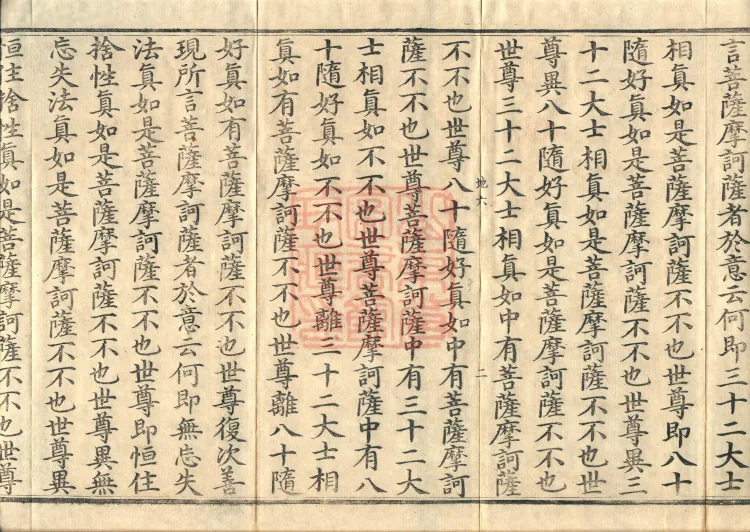 言菩薩摩訶薩者於意云何即三十二大士
相真如是菩薩摩訶薩不不也世尊即八十
隨好真如是菩薩摩訶薩不不也世尊異三
十二大士相真如是菩薩摩訶薩不不也世
尊異八十隨好真如是菩薩摩訶薩不不也
世尊三十二大士相真如中有菩薩摩訶薩
地六
二
不不也世尊八十隨好真如中有菩薩摩訶
薩不不也世尊菩薩摩訶薩中有三十二大
士相真如不不也世尊菩薩摩訶薩中有八
十隨好真如不不也世尊離三十二大士相
真如有菩薩摩訶薩不不也世尊離八十隨
好真如有菩薩摩訶薩不不也世尊復次善
現所言菩薩摩訶薩者於意云何即無忘失
法真如是菩薩摩訶薩不不也世尊即恒住
捨性真如是菩薩摩訶薩不不也世尊異無
忘失法真如是菩薩摩訶薩不不也世尊異
恒住捨性真如是菩薩摩訶薩不不也世尊